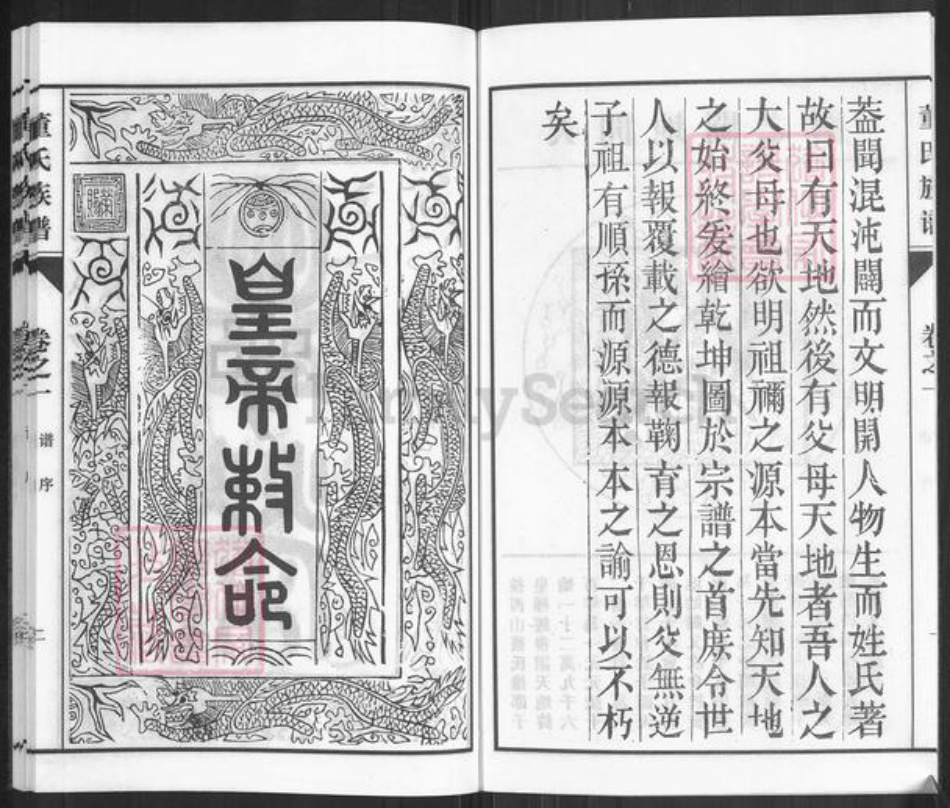 蓋聞混沌闢而文明開人物生而姓氏著
故曰有天地然後有父母天地者吾人之
大父母也欲明祖禰之源本當先知天地
之始終爰繪乾坤圖於宗譜之首庶令世
人以報覆載之德報鞠育之恩則父無逆
子祖有順孫而源源本本之諭可以不朽
矣
皇帝敕命
董氏族谱
卷之一
谱序
二
FamilySearch